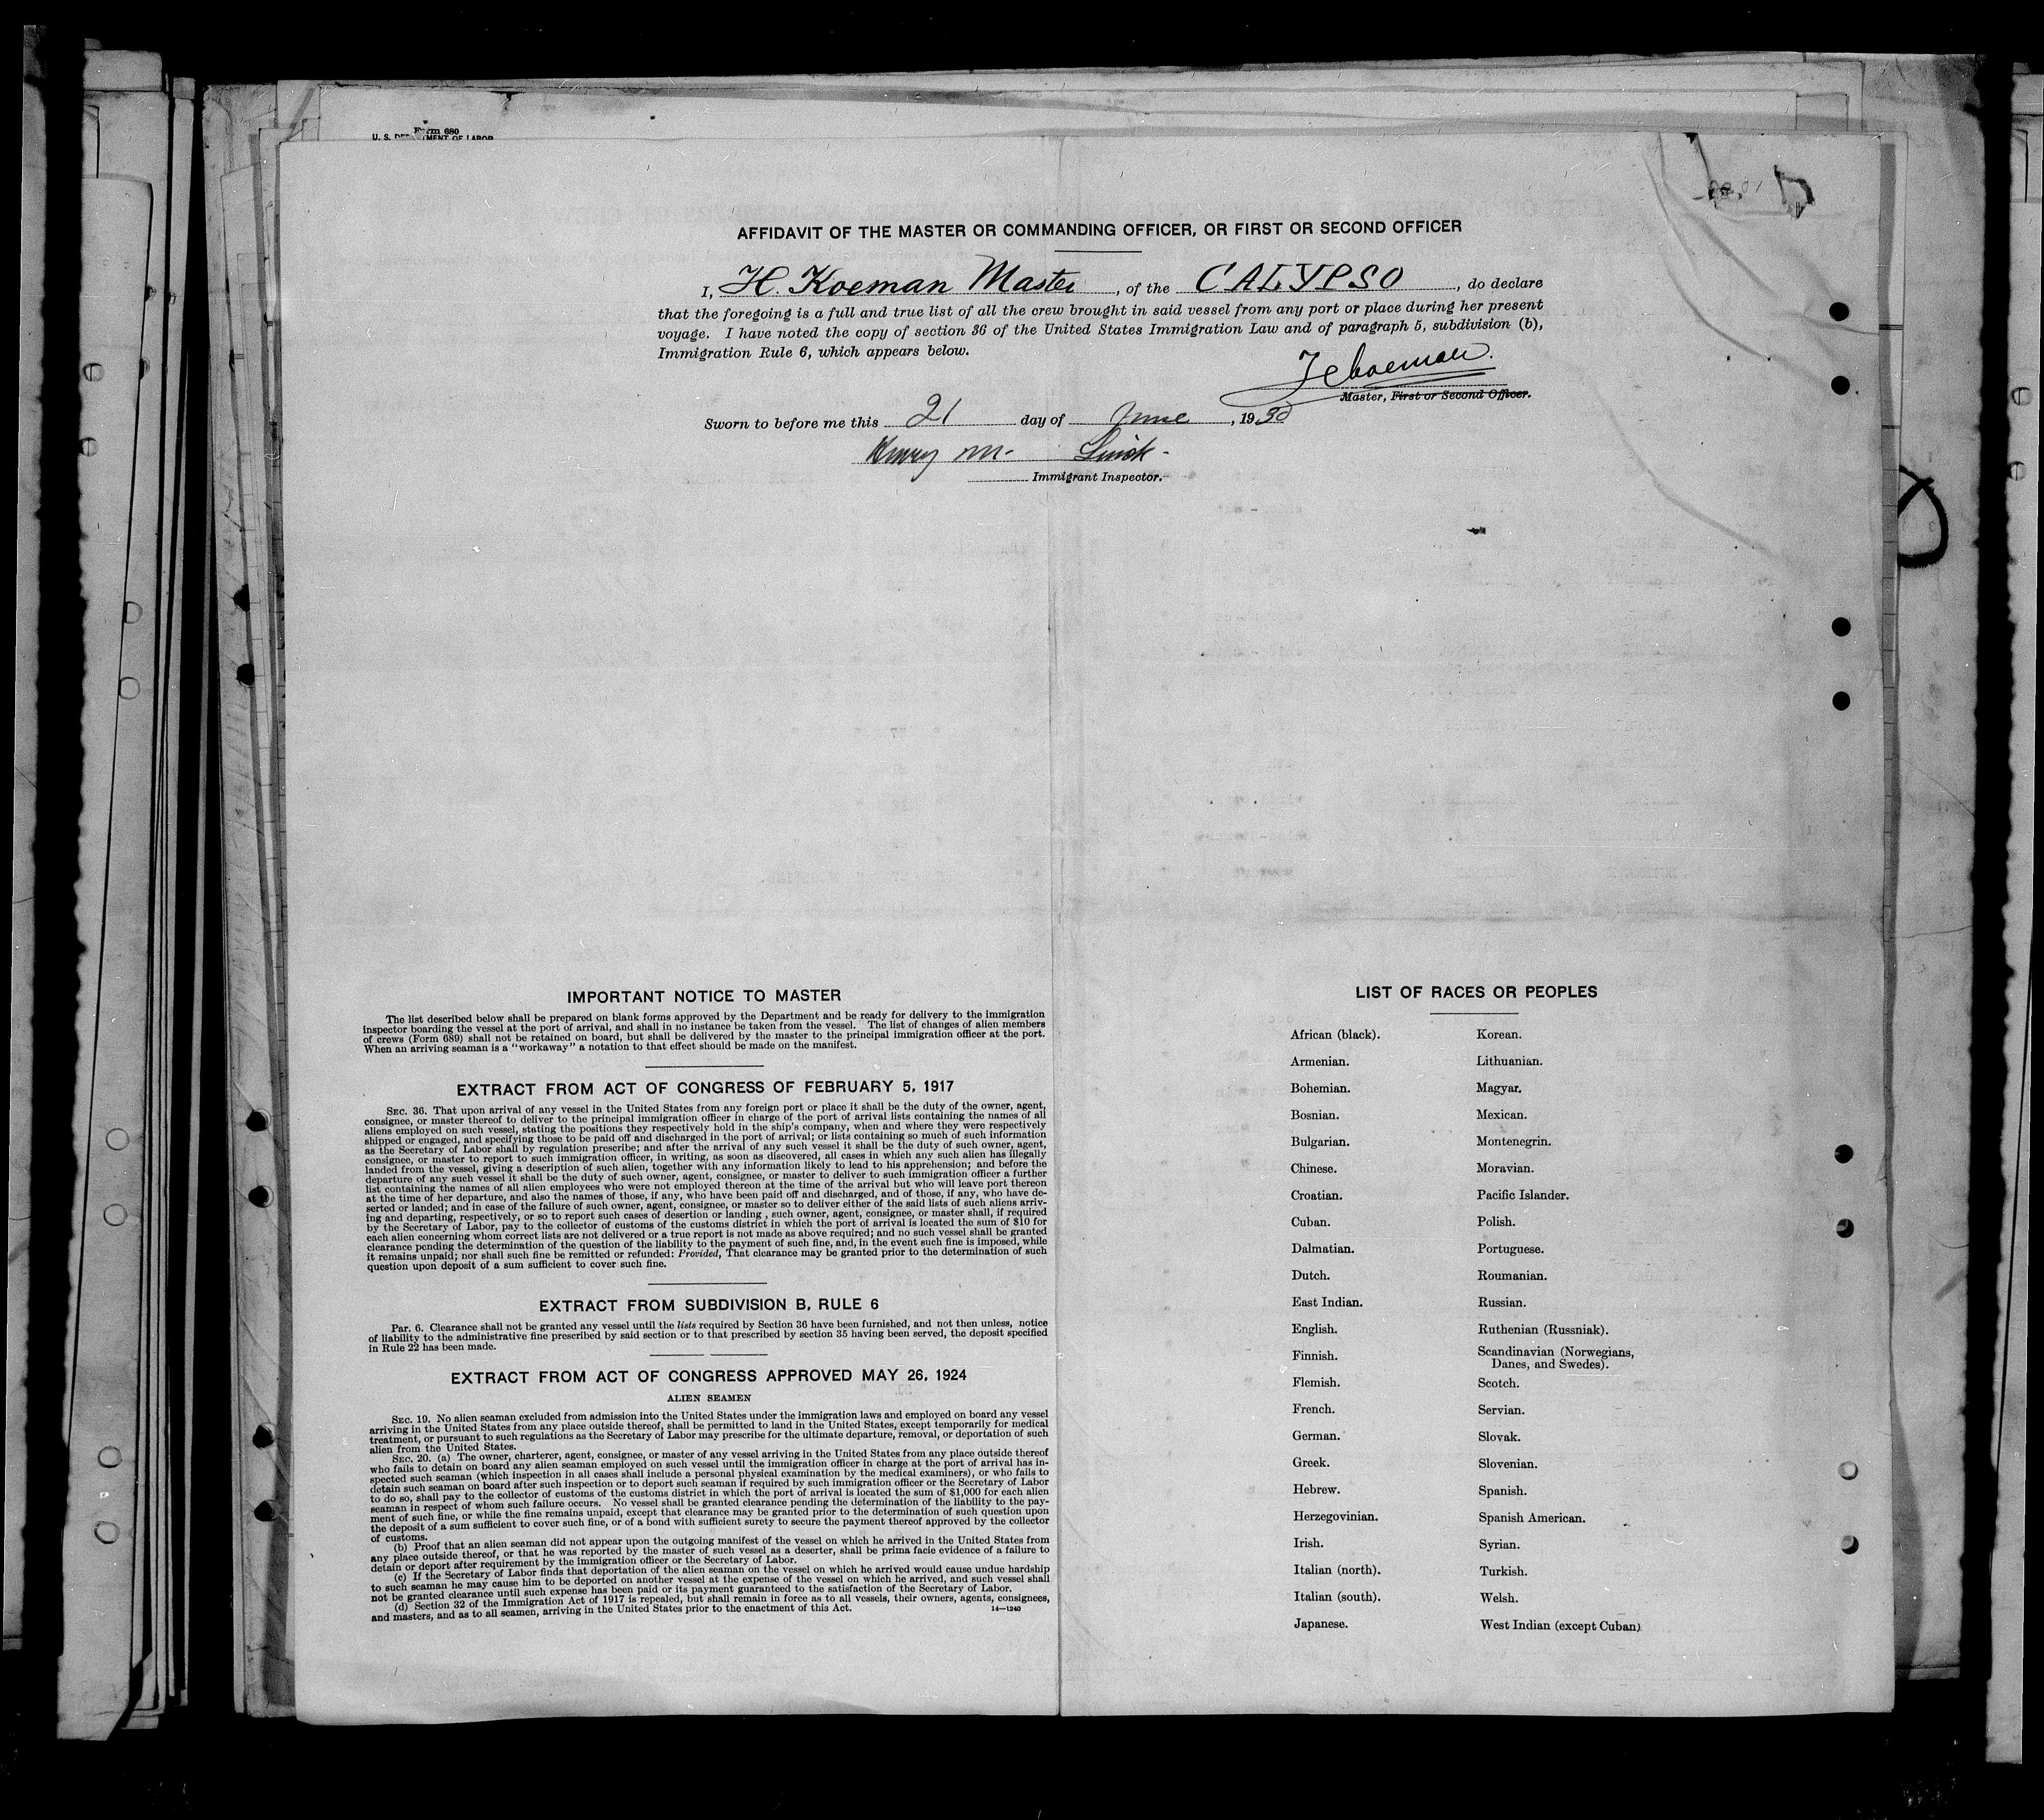 Form 680
AFFIDAVIT OF THE MASTER OR COMMANDING OFFICER, OR FIRST OR SECOND OFFICER
I, H. Koeman Master, of the CALYPSO, do declare
that the foregoing is a full and true list of all the crew brought in said vessel from any port or place during her present
voyage. I have noted the copy of section 36 of the United States Immigration Law and of paragraph 5, subdivision (b),
Immigration Rule 6, which appears below.
Koeman.
Master, First or Second Officer.
Sworn to before me this 21 day of June, 1930
Henry M.
Immigrant Inspector.
IMPORTANT NOTICE TO MASTER
The list described below shall be prepared on blank forms approved by the Department and be ready for delivery to the immigration
inspector boarding the vessel at the port of arrival, and shall in no instance be taken from the vessel. The list of changes of alien members
of crews (Form 689) shall not be retained on board, but shall be delivered by the master to the principal immigration officer at the port.
When an arriving seaman is a "workaway" a notation to that effect should be made on the manifest.
EXTRACT FROM ACT OF CONGRESS OF FEBRUARY 5, 1917
SEC. 36. That upon arrival of any vessel in the United States from any foreign port or place it shall be the duty of the owner, agent,
consignee, or master thereof to deliver to the principal immigration officer in charge of the port of arrival lists containing the names of all
aliens employed on such vessel, stating the positions they respectively hold in the ship's company, when and where they were respectively
shipped or engaged, and specifying those to be paid off and discharged in the port of arrival; or lists containing so much of such information
as the Secretary of Labor shall by regulation prescribe; and after the arrival of any such vessel it shall be the duty of such owner, agent,
consignee, or master to report to such immigration officer, in writing, as soon as discovered, all cases in which any such alien has illegally
landed from the vessel, giving a description of such alien, together with any information likely to lead to his apprehension; and before the
departure of any such vessel it shall be the duty of such owner, agent, consignee, or master to deliver to such immigration officer a further
list containing the names of all alien employees who were not employed thereon at the time of the arrival but who will leave port thereon
at the time of her departure, and also the names of those, if any, who have been paid off and discharged, and of those, if any, who have de-
serted or landed; and in case of the failure of such owner, agent, consignee, or master so to deliver either of the said lists of such aliens arriv-
ing and departing, respectively, or so to report such cases of desertion or landing , such owner, agent, consignee, or master shall, if required
by the Secretary of Labor, pay to the collector of customs of the customs district in which the port of arrival is located the sum of $10 for
each alien concerning whom correct lists are not delivered or a true report is not made as above required; and no such vessel shall be granted
clearance pending the determination of the question of the liability to the payment of such fine, and, in the event such fine is imposed, while
it remains unpaid; nor shall such fine be remitted or refunded: Provided, That clearance may be granted prior to the determination of such
question upon deposit of a sum sufficient to cover such fine.
EXTRACT FROM SUBDIVISION B, RULE 6
Par. 6. Clearance shall not be granted any vessel until the lists required by Section 36 have been furnished, and not then unless, notice
of liability to the administrative fine prescribed by said section or to that prescribed by section 35 having been served, the deposit specified
in Rule 22 has been made.
EXTRACT FROM ACT OF CONGRESS APPROVED MAY 26, 1924
ALIEN SEAMEN
SEC. 19. No alien seaman excluded from admission into the United States under the immigration laws and employed on board any vessel
arriving in the United States from any place outside thereof, shall be permitted to land in the United States, except temporarily for medical
treatment, or pursuant to such regulations as the Secretary of Labor may prescribe for the ultimate departure, removal, or deportation of such
alien from the United States.
SEC. 20. (a) The owner, charterer, agent, consignee, or master of any vessel arriving in the United States from any place outside thereof
who fails to detain on board any alien seaman employed on such vessel until the immigration officer in charge at the port of arrival has in-
spected such seaman (which inspection in all cases shall include a personal physical examination by the medical examiners), or who fails to
detain such seaman on board after such inspection or to deport such seaman if required by such immigration officer or the Secretary of Labor
to do so, shall pay to the collector of customs of the customs district in which the port of arrival is located the sum of $1,000 for each alien
seaman in respect of whom such failure occurs. No vessel shall be granted clearance pending the determination of the liability to the pay-
ment of such fine, or while the fine remains unpaid, except that clearance may be granted prior to the determination of such question upon
the deposit of a sum sufficient to cover such fine, or of a bond with sufficient surety to secure the payment thereof approved by the collector
of customs.
(b) Proof that an alien seaman did not appear upon the outgoing manifest of the vessel on which he arrived in the United States from
any place outside thereof, or that he was reported by the master of such vessel as a deserter, shall be prima facie evidence of a failure to
detain or deport after requirement by the immigration officer or the Secretary of Labor.
(c) If the Secretary of Labor finds that deportation of the alien seaman on the vessel on which he arrived would cause undue hardship
to such seaman he may cause him to be deported on another vessel at the expense of the vessel on which he arrived, and such vessel shall
not be granted clearance until such expense has been paid or its payment guaranteed to the satisfaction of the Secretary of Labor.
(d) Section 32 of the Immigration Act of 1917 is repealed, but shall remain in force as to all vessels, their owners, agents, consignees,
and masters, and as to all seamen, arriving in the United States prior to the enactment of this Act.
14—1240
LIST OF RACES OR PEOPLES
African (black). Korean.
Armenian. Lithuanian.
Bohemian. Magyar.
Bosnian. Mexican.
Bulgarian. Montenegrin.
Chinese. Moravian.
Croatian. Pacific Islander.
Cuban. Polish.
Dalmatian. Portuguese.
Dutch. Roumanian.
East Indian. Russian.
English. Ruthenian (Russniak).
Finnish. Scandinavian (Norwegians,
Danes, and Swedes).
Flemish. Scotch.
French. Servian.
German. Slovak.
Greek. Slovenian.
Hebrew. Spanish.
Herzegovinian. Spanish American.
Irish. Syrian.
Italian (north). Turkish.
Italian (south). Welsh.
Japanese. West Indian (except Cuban)